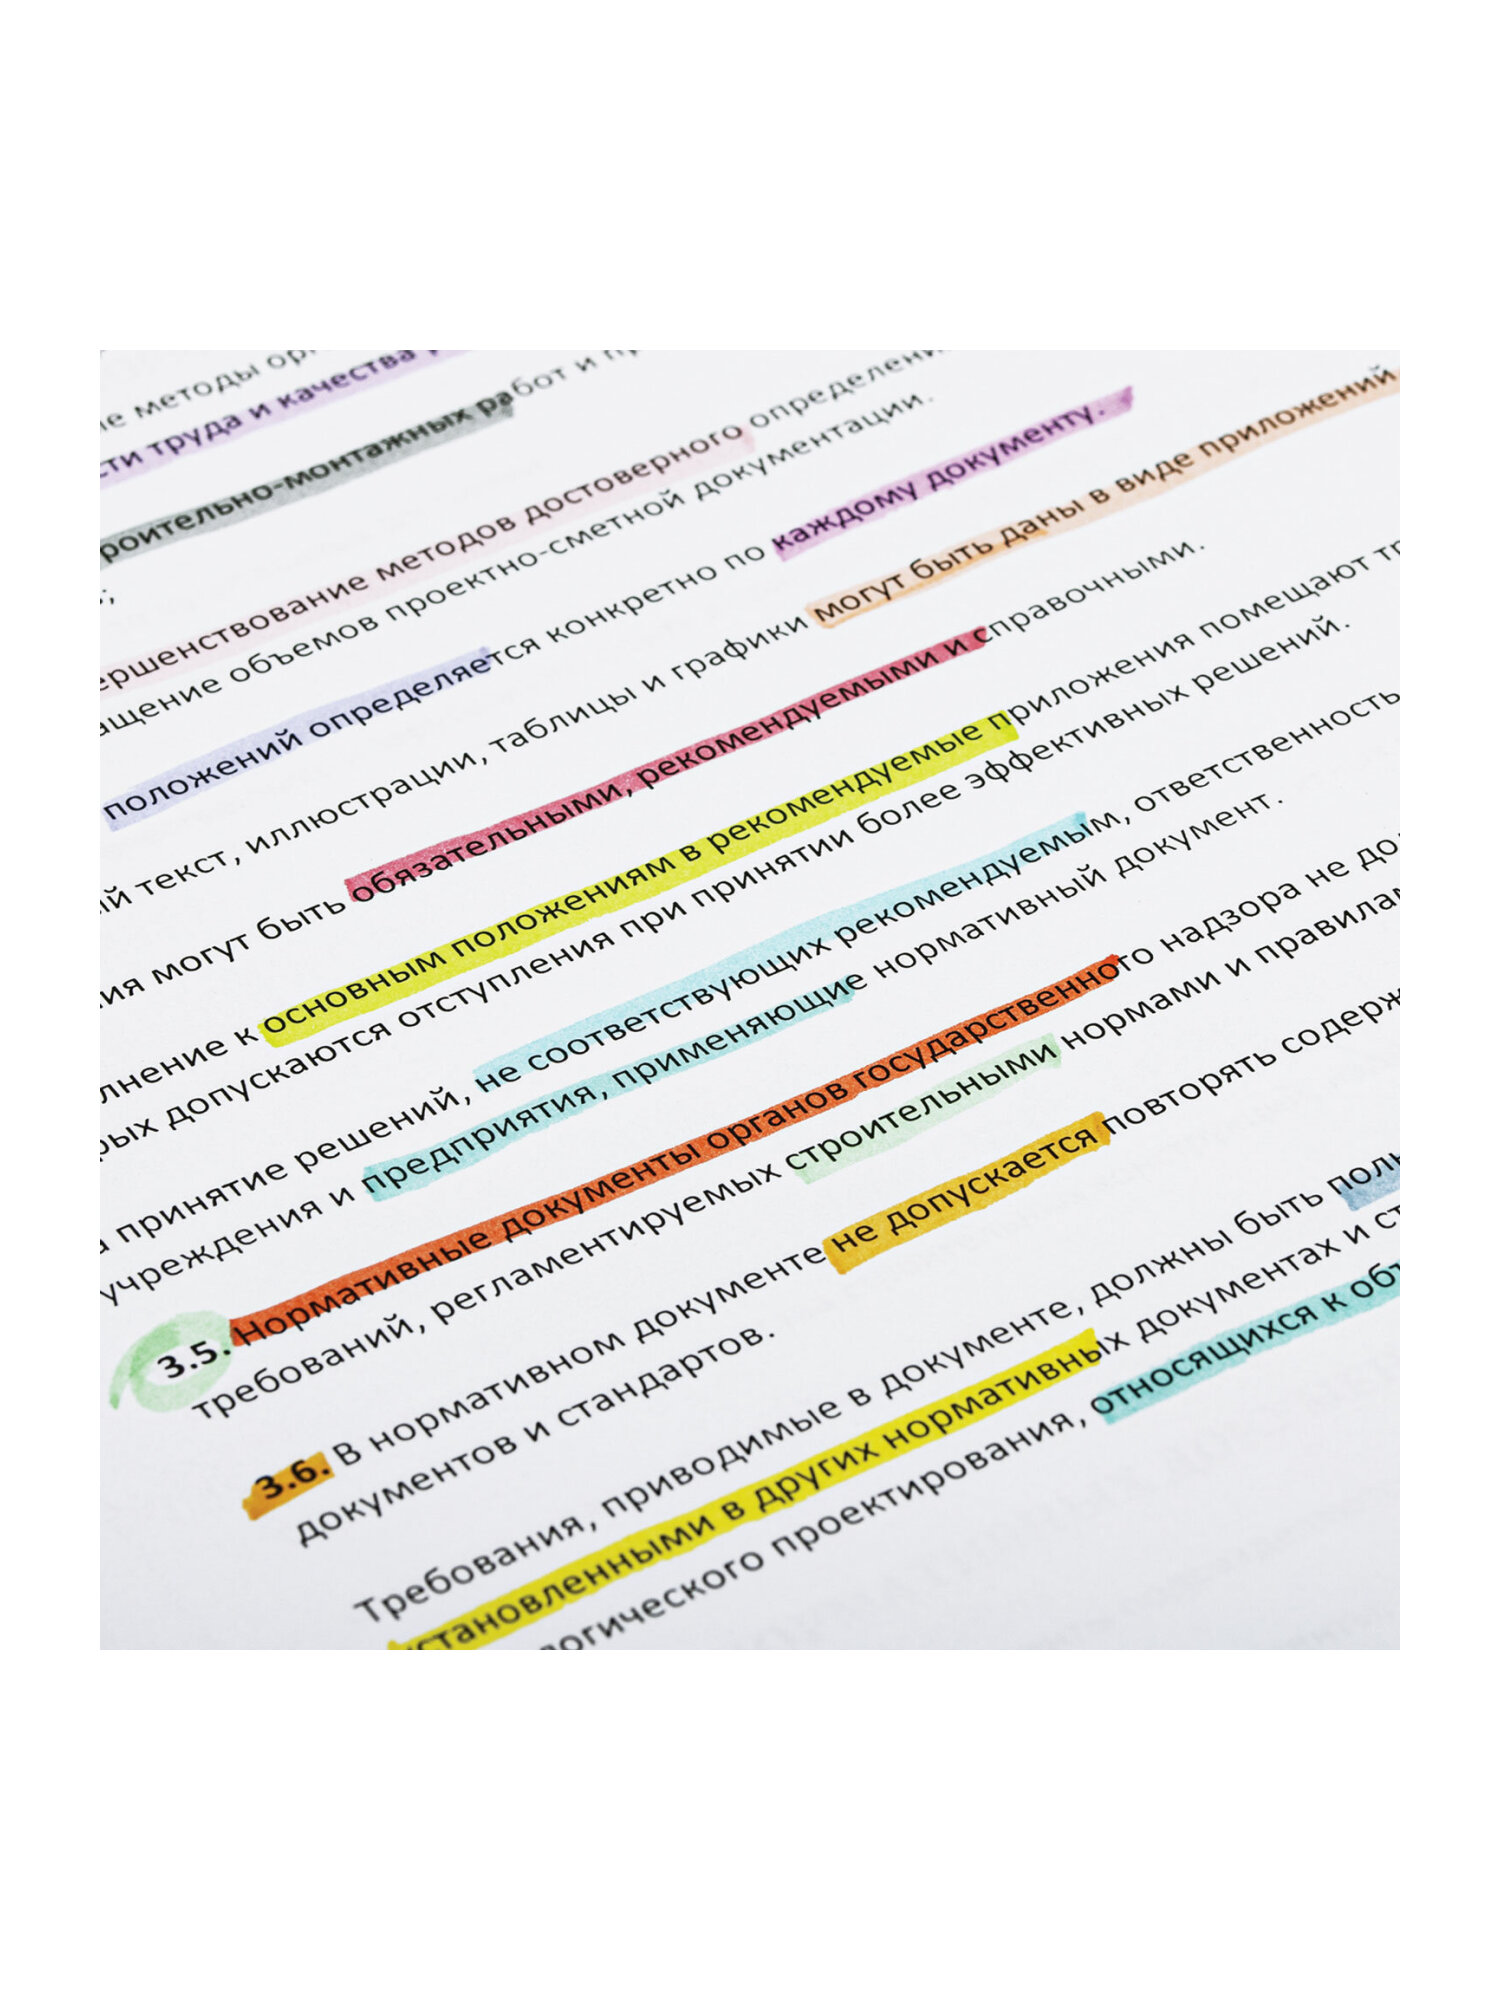 методы
труда и качества
монтажных работ и
методов достоверного
объемов проектно-сметной документации.
положений определяется конкретно по каждому документу.
текст, иллюстрации, таблицы и графики могут быть даны в виде приложений
могут быть обязательными, рекомендуемыми и справочными.
к основным положениям в рекомендуемые приложения помещают
допускаются отступления при принятии более эффективных решений.
принятие решений, не соответствующих рекомендуемым, ответственность
учреждения и предприятия, применяющие нормативный документ.
3.5. Нормативные документы органов государственного надзора не
требований, регламентируемых строительными нормами и
3.6. В нормативном документе не допускается повторять
документов и стандартов.
Требования, приводимые в документе, должны быть
в других нормативных документах и
проектирования, относящихся к